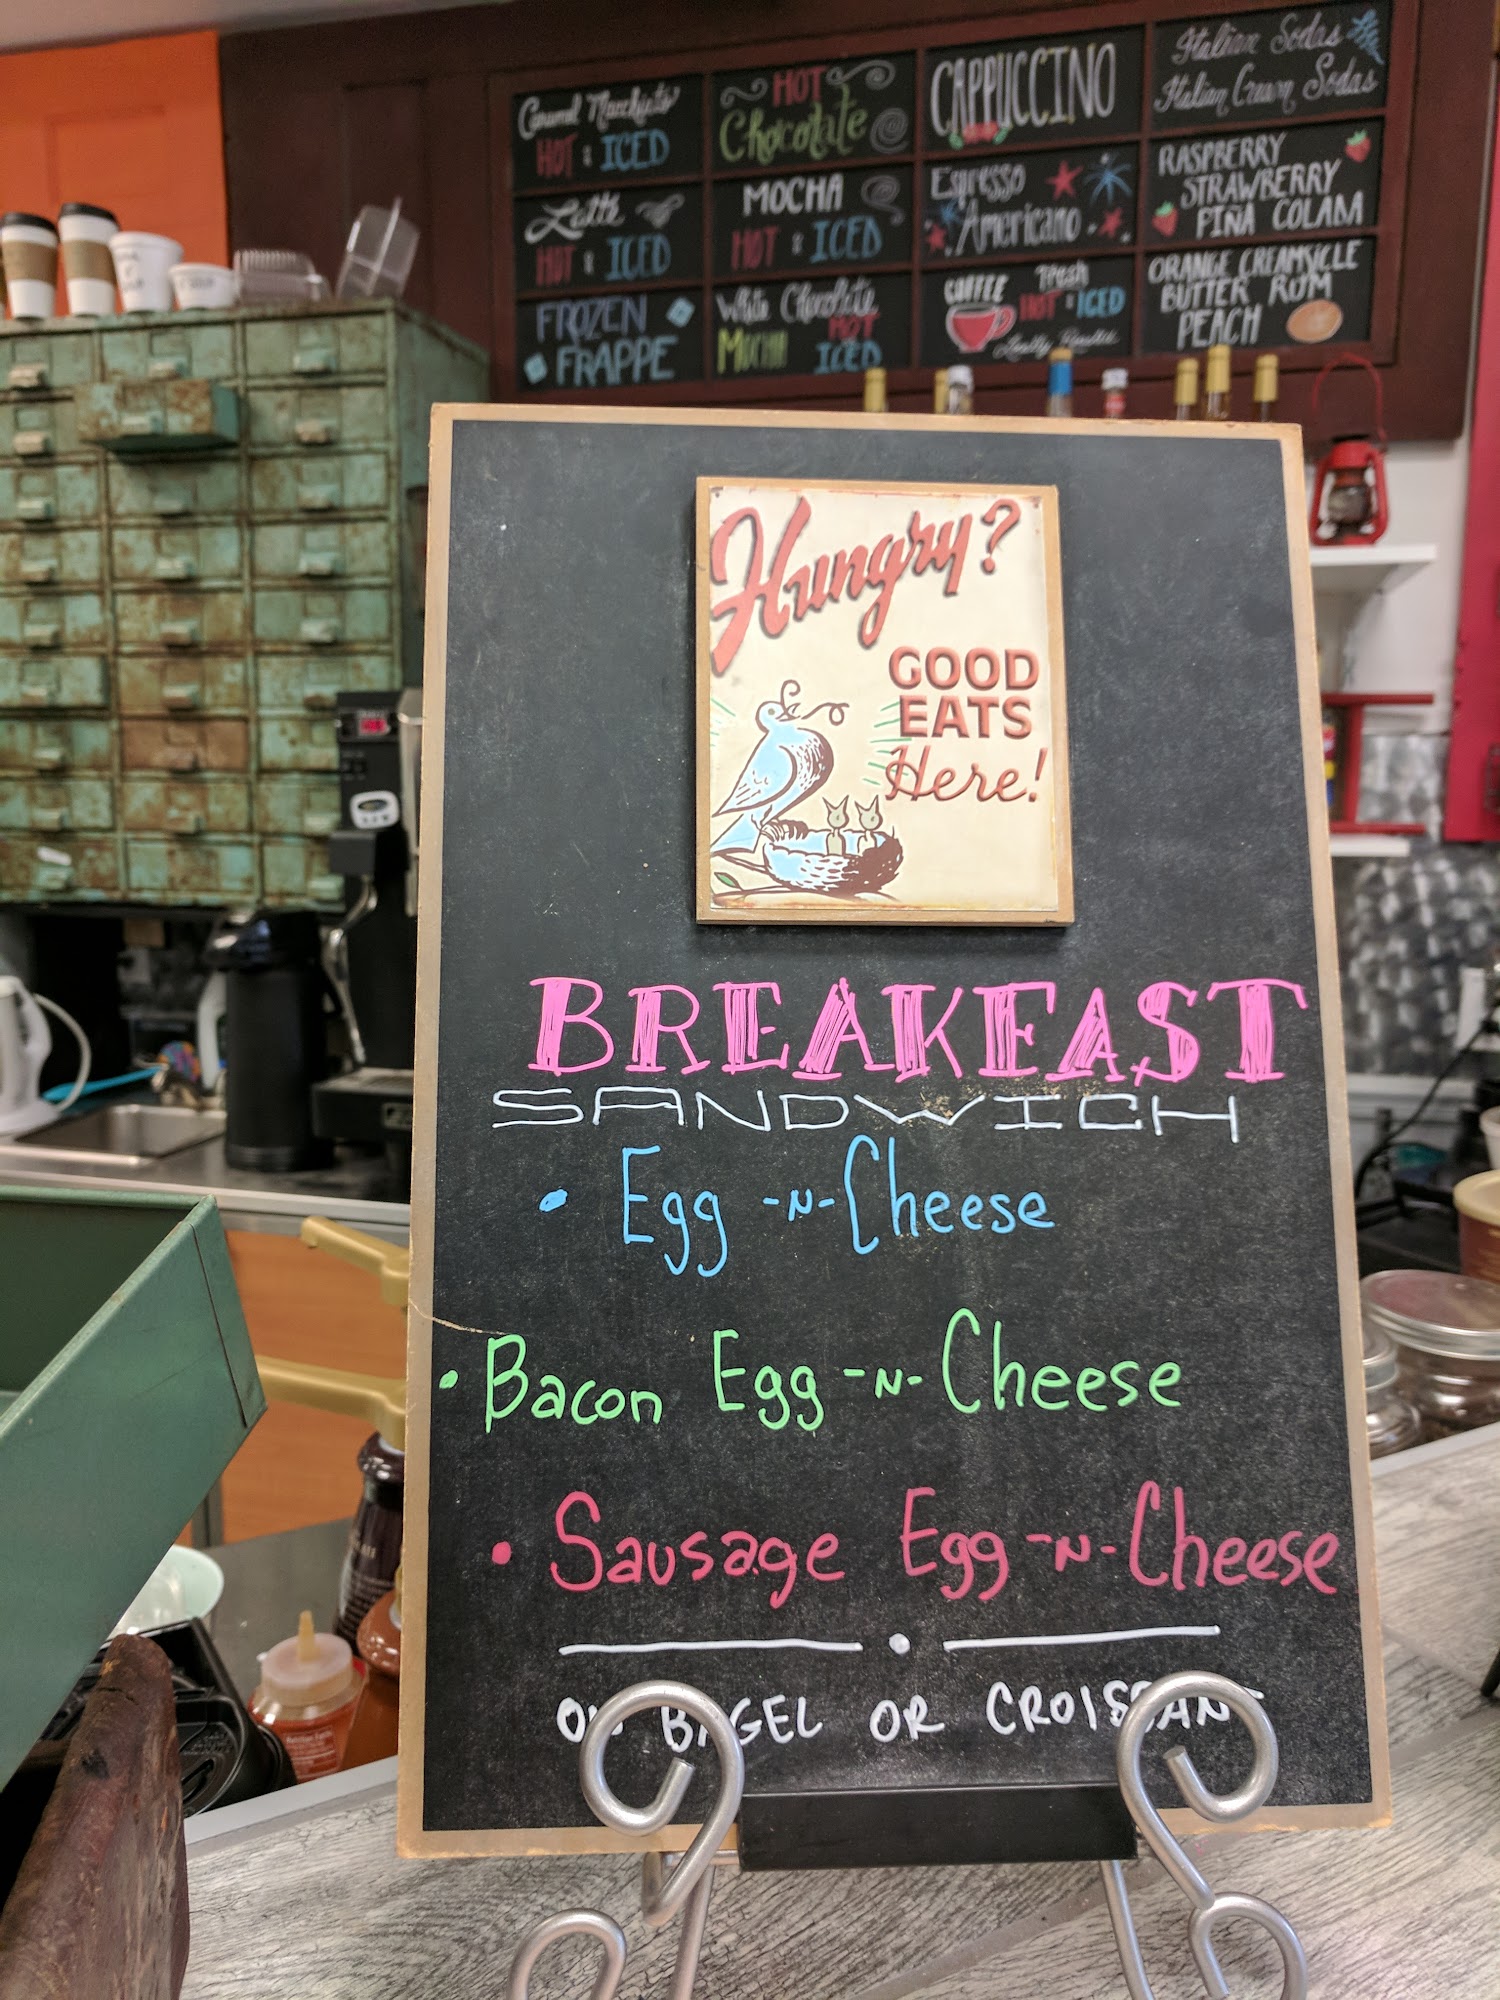 Caramel Macchiato
HOT & ICED
Latte
HOT & ICED
FROZEN
FRAPPE
HOT
Chocolate
MOCHA
HOT & ICED
White Chocolate
MOCHA HOT
ICED
CAPPUCCINO
Espresso
Americano
COFFEE Fresh
HOT & ICED
Locally Roasted
Italian Sodas
Italian Cream Sodas
RASPBERRY
STRAWBERRY
PIÑA COLADA
ORANGE CREAMSICLE
BUTTER RUM
PEACH
Hungry?
GOOD
EATS
Here!
BREAKFAST
SANDWICH
• Egg -N- Cheese
• Bacon Egg -N- Cheese
• Sausage Egg -N- Cheese
ON BAGEL OR CROISSANT